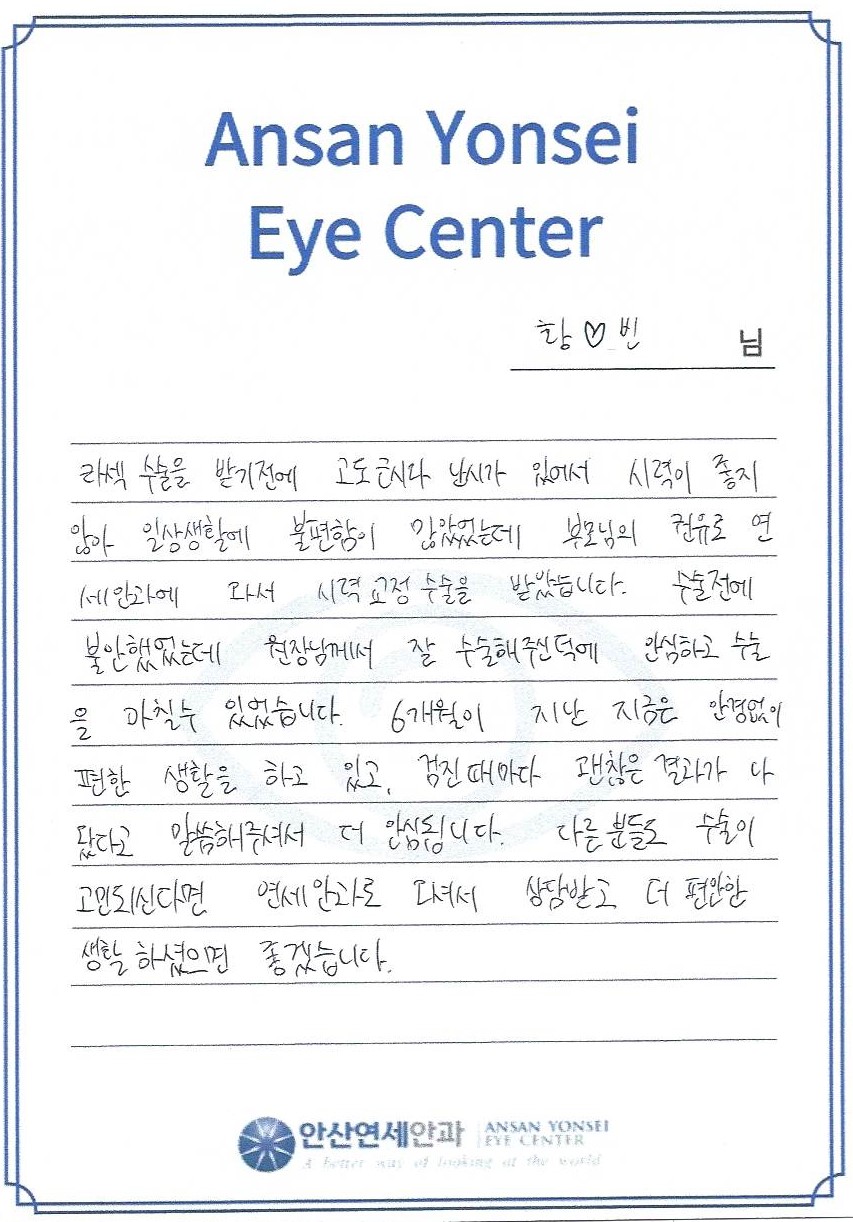 Ansan Yonsei
Eye Center
황♡빈 님
라섹 수술을 받기전에 고도근시와 난시가 있어서 시력이 좋지
않아 일상생활에 불편함이 많았었는데 부모님의 권유로 연
세안과에 와서 시력교정 수술을 받았습니다. 수술전에
불안했었는데 원장님께서 잘 수술해주신덕에 안심하고 수술
을 마칠수 있었습니다. 6개월이 지난 지금은 안경없이
편한 생활을 하고 있고, 검진때마다 괜찮은 결과가 나
왔다고 말씀해주셔서 더 안심됩니다. 다른분들도 수술이
고민되신다면 연세안과로 오셔서 상담받고 더 편안한
생활 하셨으면 좋겠습니다.
안산연세안과 ANSAN YONSEI
EYE CENTER
A better way of looking at the world